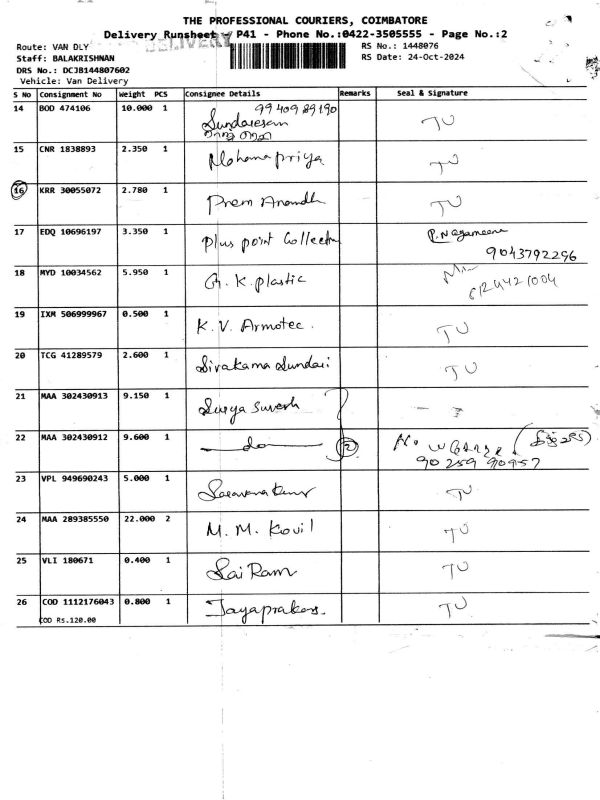 THE PROFESSIONAL COURIERS, COIMBATORE
Delivery Runsheet - P41 - Phone No.:0422-3505555 - Page No.:2
DELIVERY
Route: VAN DLY
RS No.: 1448076
Staff: BALAKRISHNAN
RS Date: 24-Oct-2024
DRS No.: DCJB144807602
Vehicle: Van Delivery
S No Consignment No Weight PCS Consignee Details Remarks Seal & Signature
14 BOD 474106 10.000 1 9940989190
Sundaresan TU
15 CNR 1838893 2.350 1 Mohana priya TU
16 KRR 30055072 2.780 1 Prem Anandh TU
17 EDQ 10696197 3.350 1 Plus point Collection P. Nagameena
9043792296
18 MYD 10034562 5.950 1 G. K. plastic
6124421004
19 IXM 506999967 0.500 1 K. V. Armotec. TU
20 TCG 41289579 2.600 1 Sivakama Sundari TU
21 MAA 302430913 9.150 1 Surya Suresh
22 MAA 302430912 9.600 1 — do — 2
90259 90957
23 VPL 949690243 5.000 1 Saravana Kumar TU
24 MAA 289385550 22.000 2 M. M. Kovil TU
25 VLI 180671 0.400 1 Sai Ram TU
26 COD 1112176043 0.800 1 Jayaprakas. TU
COD Rs.120.00